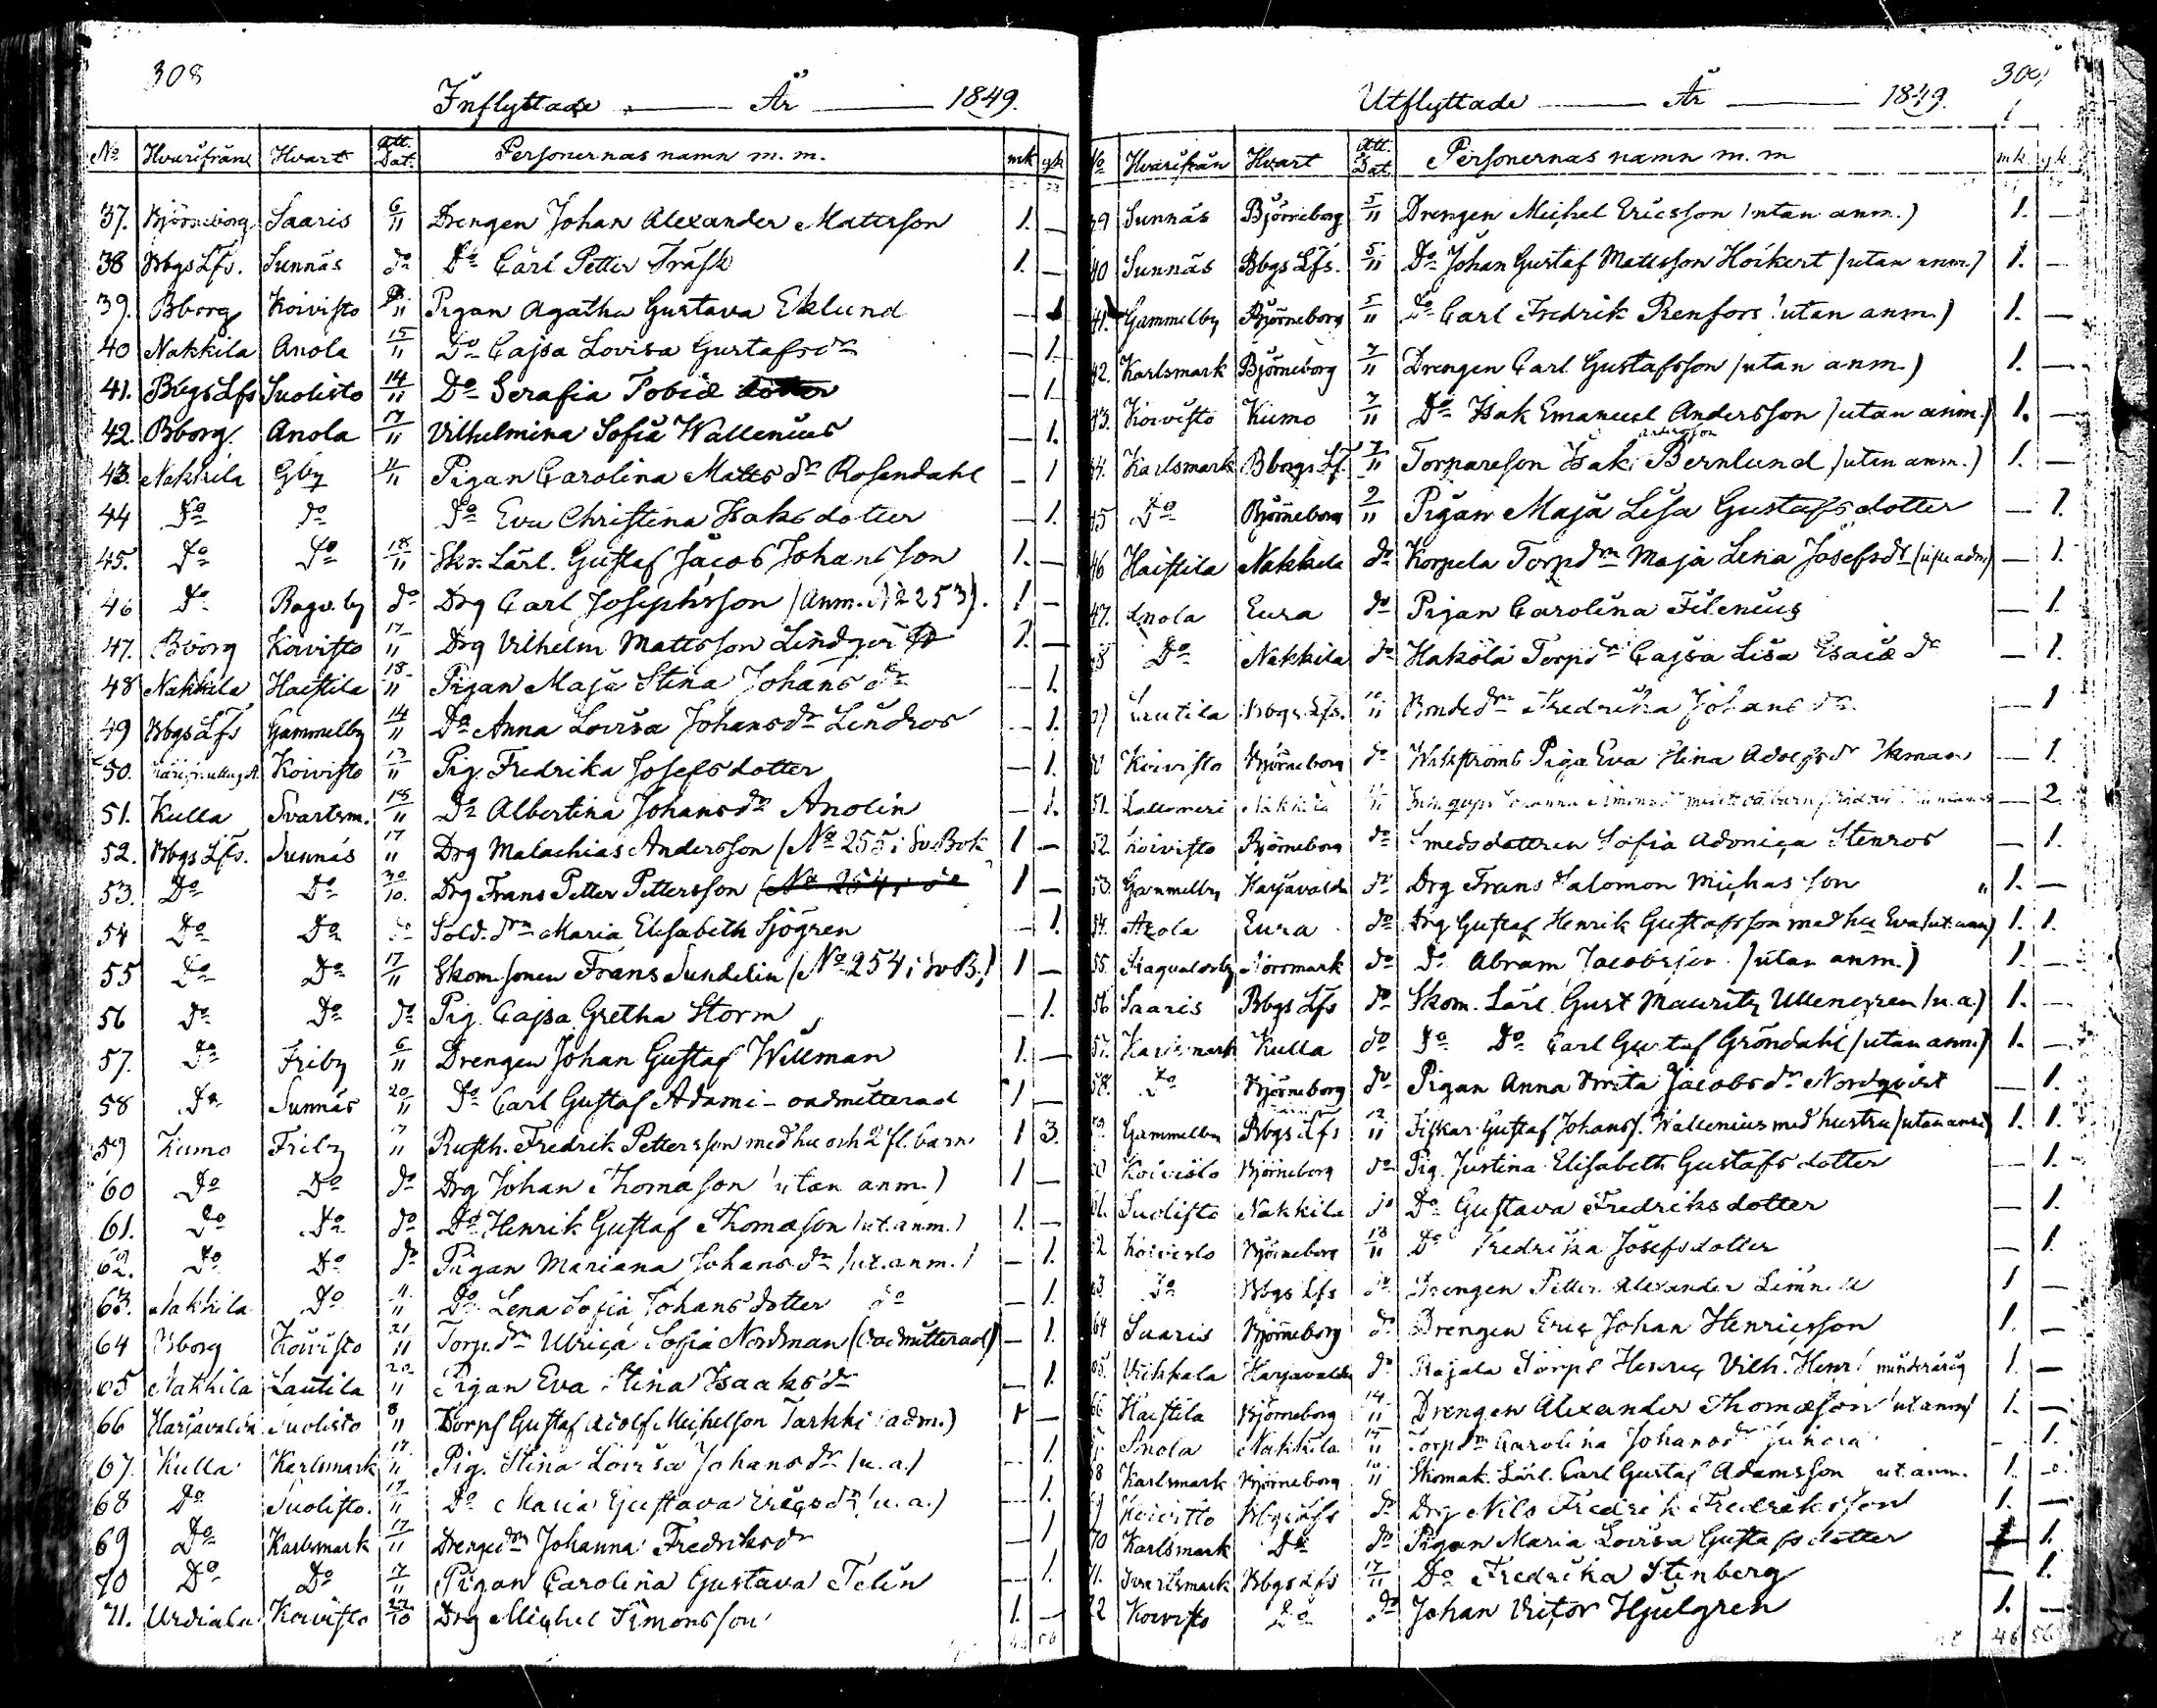 308
Inflyttade — År — 1849.
No Hvarifrån Hvart Att. Dat. Personernas namn m. m. mk qk
37. Björneborg Saaris 6/11 Drengen Johan Alexander Matsson 1. —
38 Bbgs Lfs. Sunnäs do Do Carl Petter Träsk 1. —
39. Bborg Koivisto Pigan Agatha Gustava Eklund — 1
40 Nakkila Anola 15/11 Do Cajsa Lovisa Gustafsdr — 1.
41. Bbgs Lfs Suolisto 14/11 Do Serafia Tobiæ dotter — 1
42. Bborg. Anola 17/11 Vilhelmina Sofia Wallenius — 1.
43. Nakkila Gby 11/11 Pigan Carolina Matts dr Rosendahl — 1
44 Do do Do Eva Christina Isaksdotter — 1.
45. Do Do 18/11 Skr. Lärl. Gustaf Jacob Johansson 1. —
46 Do Ragv. by do Drg Carl Josephsson (Anm. No 2253). 1 —
47. Bborg Koivisto 17/11 Drg Vilhelm Mattsson Lindqvi 1. —
48 Nakkila Haistila 18/11 Pigan Maja Stina Johans dr — 1.
49 Bbgs Lfs Gammelby 14/11 Do Anna Lovisa Johansdr Lindros — 1.
50. Koivisto 13/11 Pig. Fredrika Josefsdotter — 1.
51. Kulla Svartsm. 18/11 Do Albertina Johansdr Anolin — 1.
52. Bbgs Lfs. Sunnäs 17/11 Drg Malachias Andersson (No 255 i Sv. Bok 1 —
53. Do Do 30/10. Drg Frans Petter Pettersson (No 254 i do 1 —
54 Do Do do Sold. drn Maria Elisabeth Sjögren — 1.
55 Do Do 17/11 Skom. sonen Frans Sundelin (No 254 i Sv B.) 1 —
56 Do Do do Pig. Cajsa Gretha Storm — 1.
57. Do Friby 6/11 Drengen Johan Gustaf Willman 1. —
58 Do Sunnäs 20/11 Do Carl Gustaf Adami - oadmitterad 1 —
59 Kumo Friby 17/11 Rusth. Fredrik Pettersson med hu och 2 fl. barn 1 3.
60 Do Do do Drg Johan Thomason (utan anm.) 1 —
61. Do Do do Do Henrik Gustaf Thomason (ut. anm.) 1. —
62. Do Do do Pigan Mariana Johansdr (ut. anm.) — 1.
63. Nakkila Do 11/11 Do Lena Sofia Johansdotter do — 1.
64 Bborg Koivisto 21/11 Torp. drn Ulrica Sofia Nordman (Oadmitterad) — 1.
65 Nakkila Lautila 20/11 Pigan Eva Stina Isaksdr — 1.
66 Harjavalda Suolisto 8/11 Torps Gustaf Adolf Michelson Tarkki (adm.) 1 —
67. Kulla Karlsmark 17/11 Pig. Stina Lovisa Johansdr (u. a.) — 1.
68 Do Suolisto. 17/11 Do Maria Gustava Ericsdr (u. a.) — 1.
69 Do Karlsmark 17/11 Drengedrn Johanna Fredriksdr — 1
70 Do Do 17/11 Pigan Carolina Gustava Telin — 1.
71. Urdiala Koivisto 27/10 Drg Michel Simonsson 1. —
Utflyttade — År — 1849.
No Hvarifrån Hvart Att. Dat. Personernas namn m. m mk. qk.
39 Sunnäs Björneborg 5/11 Drengen Michel Ericsson (utan anm.) 1. —
40 Sunnäs Bbgs Lfs. 5/11 Do Johan Gustaf Mattsson Höckert (utan anm.) 1. —
41. Gammelby Björneborg 5/11 Do Carl Fredrik Renfors (utan anm.) 1. —
42. Karlsmark Björneborg 7/11 Drengen Carl Gustafsson (utan anm.) 1. —
43. Koivisto Kumo 7/11 Do Isak Emanuel Andersson (utan anm.) 1. —
44. Karlsmark Bborgs Lf. 7/11 Torpareson Isak Andersson Bernlund (utan anm.) 1. —
45 Do Björneborg 9/11 Pigan Maja Lisa Gustafsdotter — 1.
46 Haistila Nakkila do Korpela Torpdrn Maja Lena Josefsdr — 1.
47. Anola Eura do Pigan Carolina Filenius — 1.
48 Do Nakkila do Haköla Torpdrn Cajsa Lisa Esaiæ dr — 1.
49 Lautila Bbgs. Lfs. Bondedrn Fredrika Johansdr. — 1
50 Koivisto Björneborg do Wikströms Piga Eva Stina Adolfsdr Ikman — 1.
51. Lattomeri Nakkila — 2.
52. Koivisto Björneborg do Smedsdottren Sofia Adonica Stenros — 1.
53. Gammelby Harjavalda do Drg Frans Salomon Michasson 1. —
54. Anola Eura do Drg Gustaf Henrik Gustafsson med hu Eva (ut. anm) 1. 1.
55. Ragvaldsby Norrmark do Do Abram Jacobsson (utan anm.) 1. —
56 Saaris Bbgs Lfs do Skom. Lärl. Gust Mauritz Ullengren (u. a.) 1. —
57. Karlsmark Kulla do Do Do Carl Gustaf Gröndahl (utan anm.) 1. —
58. Do Björneborg do Pigan Anna Brita Jacobsdr Nordqvist — 1.
59 Gammelby Bbgs Lfs 12/11 Fiskar. Gustaf Johanss. Wallenius med hustru (utan anm) 1. 1.
60 Koivisto Björneborg do Pig. Justina Elisabeth Gustafsdotter — 1.
61. Suolisto Nakkila do Do Gustava Fredriksdotter — 1.
62 Koivisto Björneborg 13/11 Do Fredrika Josefsdotter — 1.
63. Do Bbgs Lfs do Drengen Petter Alexander 1 —
64 Saaris Björneborg do Drengen Eric Johan Henricsson 1. —
65. Viikkala Harjavalda do Rajala Torps Henric Vilh. Henr. minderårig 1. —
66 Haistila Björneborg 14/11 Drengen Alexander Thomason (ut anm) 1. —
67 Anola Nakkila Torpdrn Carolina Johansdr Junora — 1.
68 Karlsmark Björneborg Skomak. Lärl. Carl Gustaf Adamsson ut. anm. 1. —
69 Koivisto Bbgs Lfs do Drg Nils Fredrik Fredriksson 1. —
70 Karlsmark Do do Pigan Maria Lovisa Gustafsdotter — 1.
71. Svartsmark Bbgs Lfs 17/11 Do Fredrika Stenberg — 1.
72 Koivisto Do do Johan Victor Hjulgren 1. —
46 56